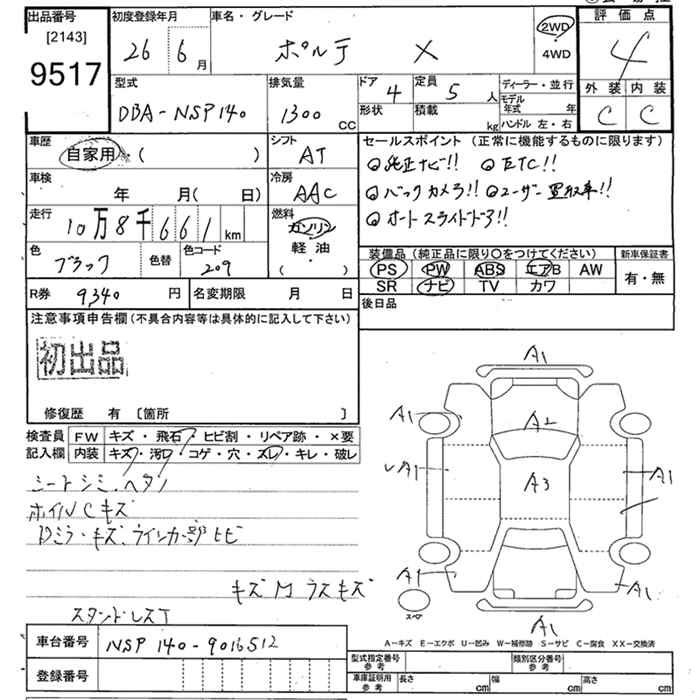 出品番号
[2143]
9517
初度登録年月
26年 6月
車名・グレード
ポルテ X
2WD
・
4WD
評価点
4
外装 内装
C C
型式
DBA-NSP140
排気量
1300 CC
ドア 4
形状
定員 5 人
積載 kg
ディーラー・並行
モデル年式 年
ハンドル 左・右
車歴
自家用 ( )
シフト
AT
車検
年 月( 日)
冷房
AAC
走行
10万8千661 km
燃料
ガソリン
軽油
( )
色
ブラック
色替
色コード
209
R券 9,340 円
名変期限 月 日
セールスポイント (正常に機能するものに限ります)
◎純正ナビ!! ◎ETC!!
◎バックカメラ!! ◎ユーザー買取車!!
◎オートスライドドア!!
装備品 (純正品に限り〇をつけてください)
PS PW ABS エアB AW
SR ナビ TV カワ
新車保証書
有・無
後日品
注意事項申告欄 (不具合内容等は具体的に記入して下さい)
初出品
修復歴 有 〔箇所 〕
検査員記入欄
FW キズ・飛石・ヒビ割・リペア跡・×要
内装 キズ・汚レ・コゲ・穴・スレ・キレ・破レ
シートシミ、ヘタリ
ホイルCキズ
Dミラーキズ、ウインカー部ヒビ
キズM ラスキズ
スタンドレスT
A1
A1
A2
A1
A3
A1
A1
A1
A1
スペア
A-キズ E-エクボ U-凹み W-補修跡 S-サビ C-腐食 XX-交換済
車台番号 NSP140-9016512
登録番号
型式指定番号 参考
類別区分番号 参考
車庫証明用 参考
長さ cm
幅 cm
高さ cm